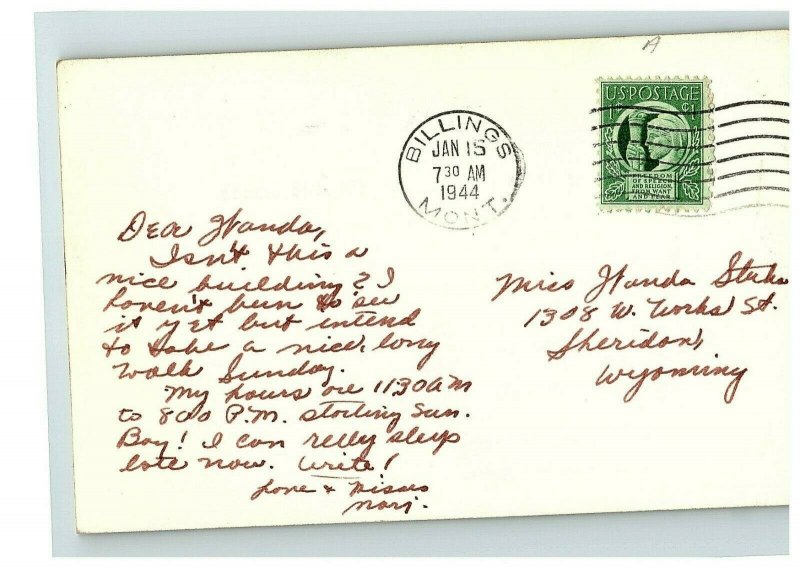 A
U.S.POSTAGE
$1
FREEDOM
OF SPEECH
AND RELIGION,
FROM WANT
AND FEAR
BILLINGS
JAN 15
7 30 AM
1944
MONT.
Dear Wanda,
Isn't this a
nice building? I
haven't been to see
it yet but intend
to take a nice, long
walk Sunday.
My hours are 11:30 am
to 800 P.M. starting Sun.
Boy! I can relly sleep
late now. Write!
Love &
Marj.
Miss Wanda
1308 W. Works St.
Sheridan,
Wyoming